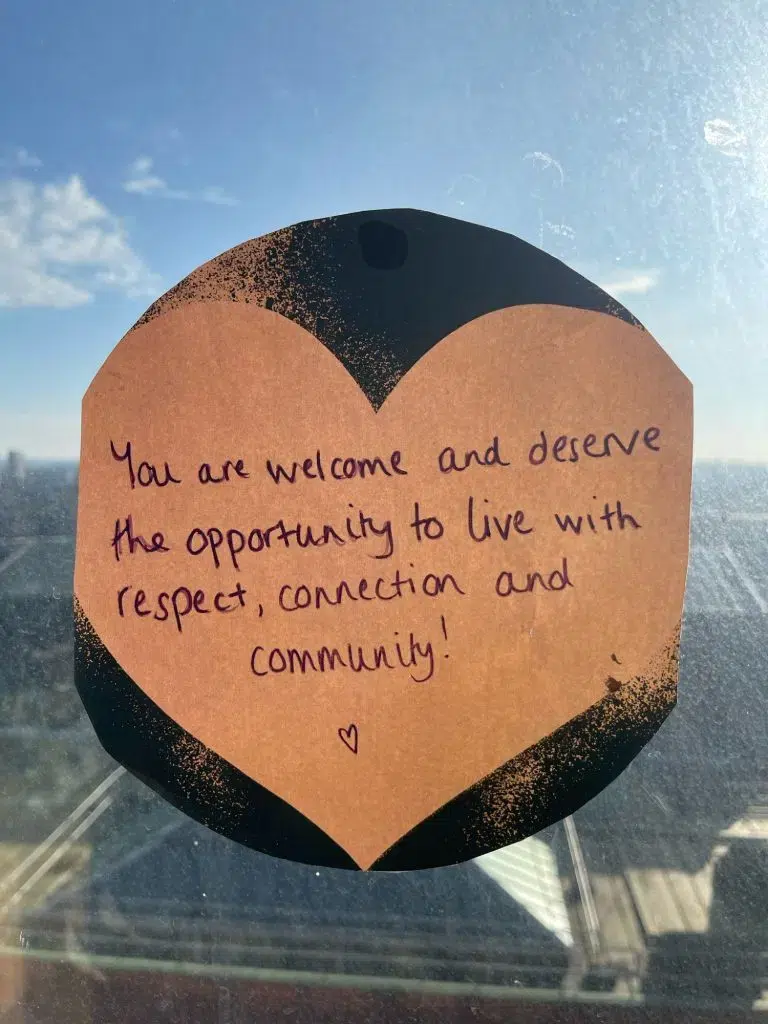 You are welcome and deserve
the opportunity to live with
respect, connection and
community!